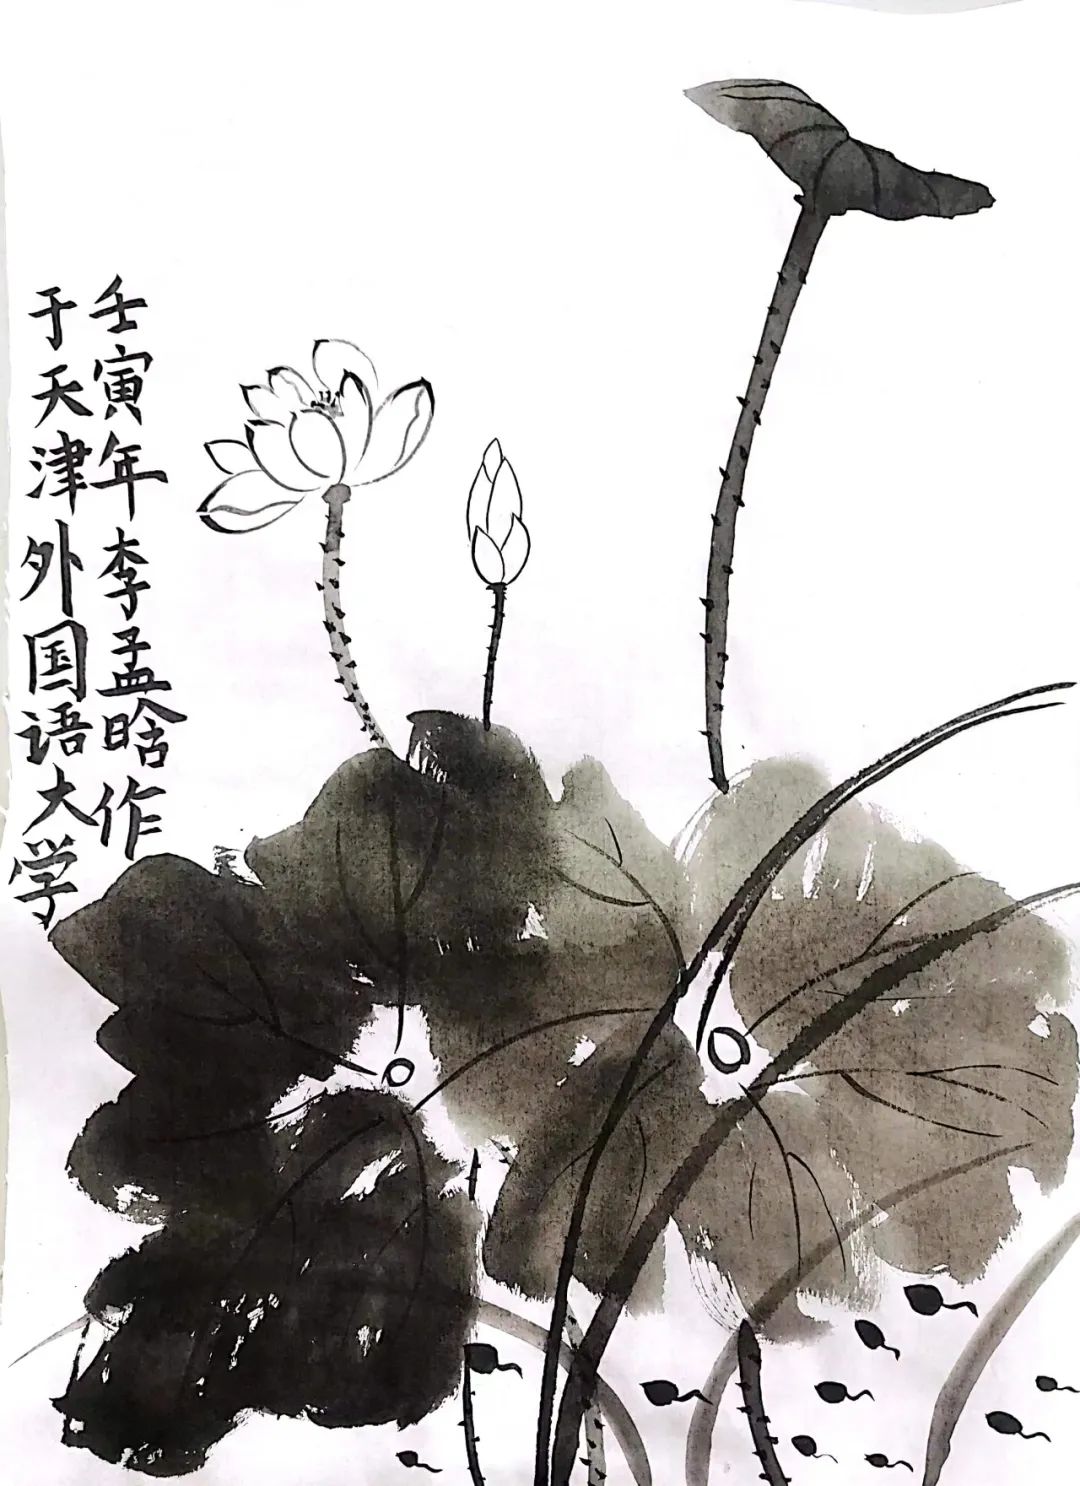 壬寅年李孟晗作
于天津外国语大学